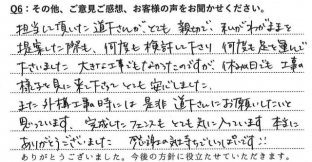 Q6：その他、ご意見ご感想、お客様の声をお聞かせください。
担当して頂いた道下さんがとても親切で、私がわがままを
提案した際も、何度も検討して下さり 何度も足を運んで
下さいました 大きな工事でもなかったのですが、休み日でも工事の
様子を見に来て下さって とても安心しました。
また外構工事の時には 是非 道下さんにお願いしたいと
思っています。 完成したフェンスもとても気に入っています 本当に
ありがとうございました 感謝の気持ちでいっぱいです!!
ありがとうございました。今後の方針に役立たせていただきます。